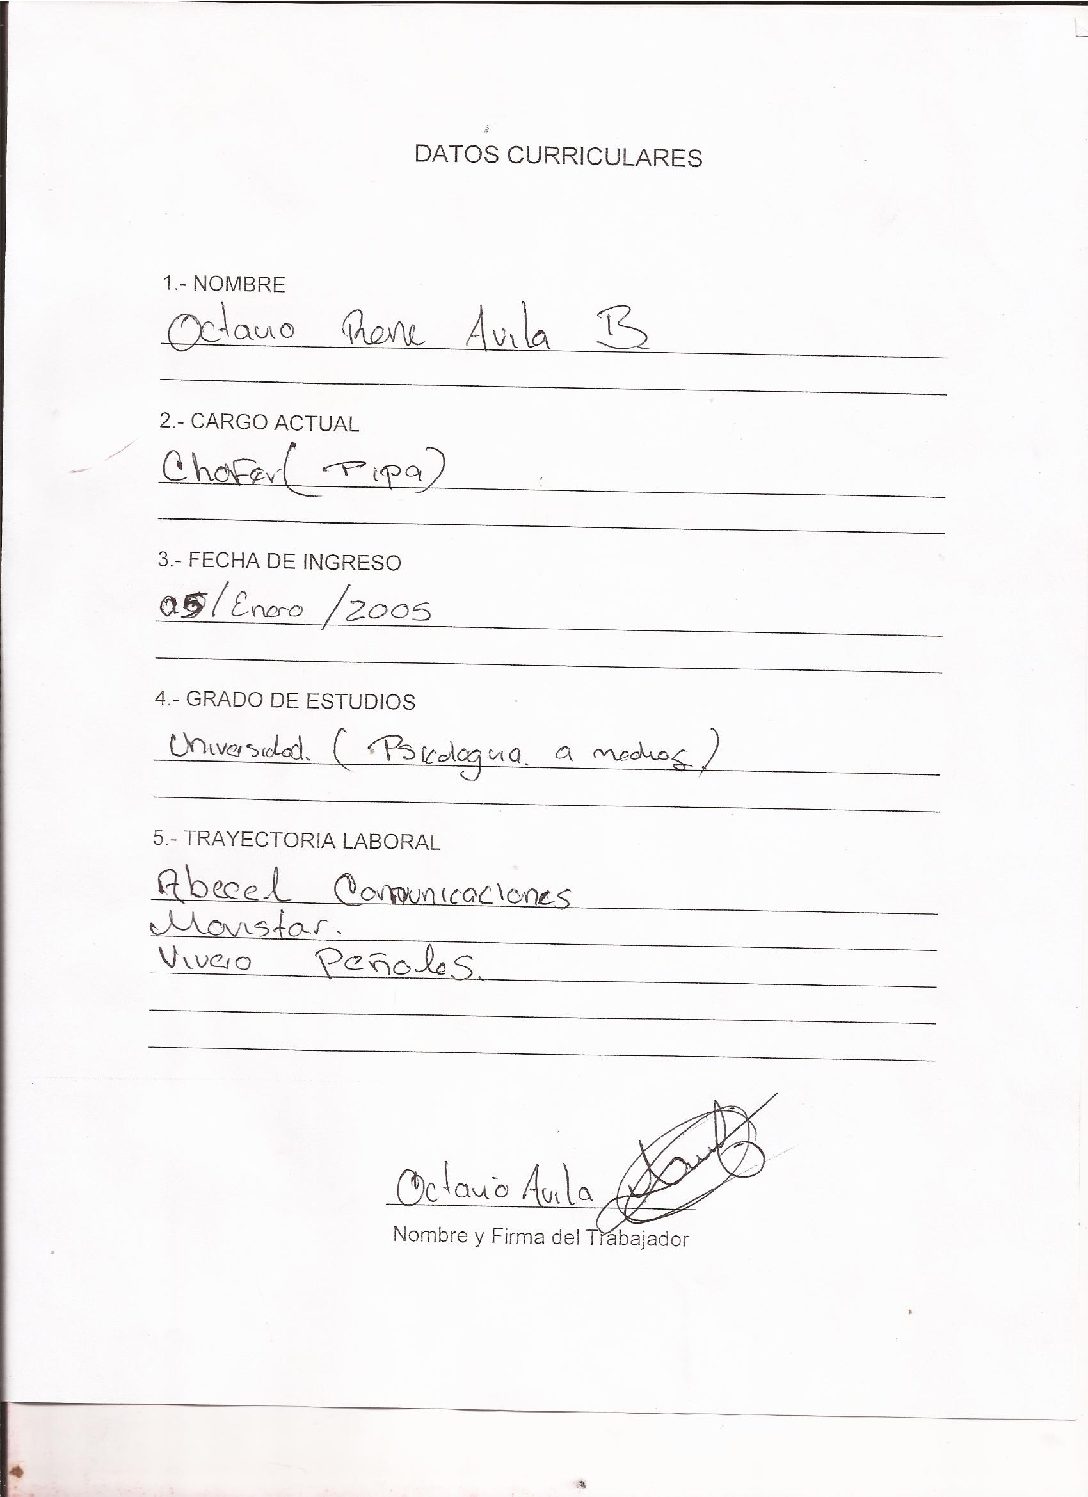 DATOS CURRICULARES
1.- NOMBRE
Octavio Rene Avila B
2.- CARGO ACTUAL
Chofer ( Pipa )
3.- FECHA DE INGRESO
05/Enero /2005
4.- GRADO DE ESTUDIOS
Universidad. ( Psicologia a medias )
5.- TRAYECTORIA LABORAL
Abecel Comunicaciones
Movistar.
Vivero Peñoles.
Octavio Avila
Nombre y Firma del Trabajador